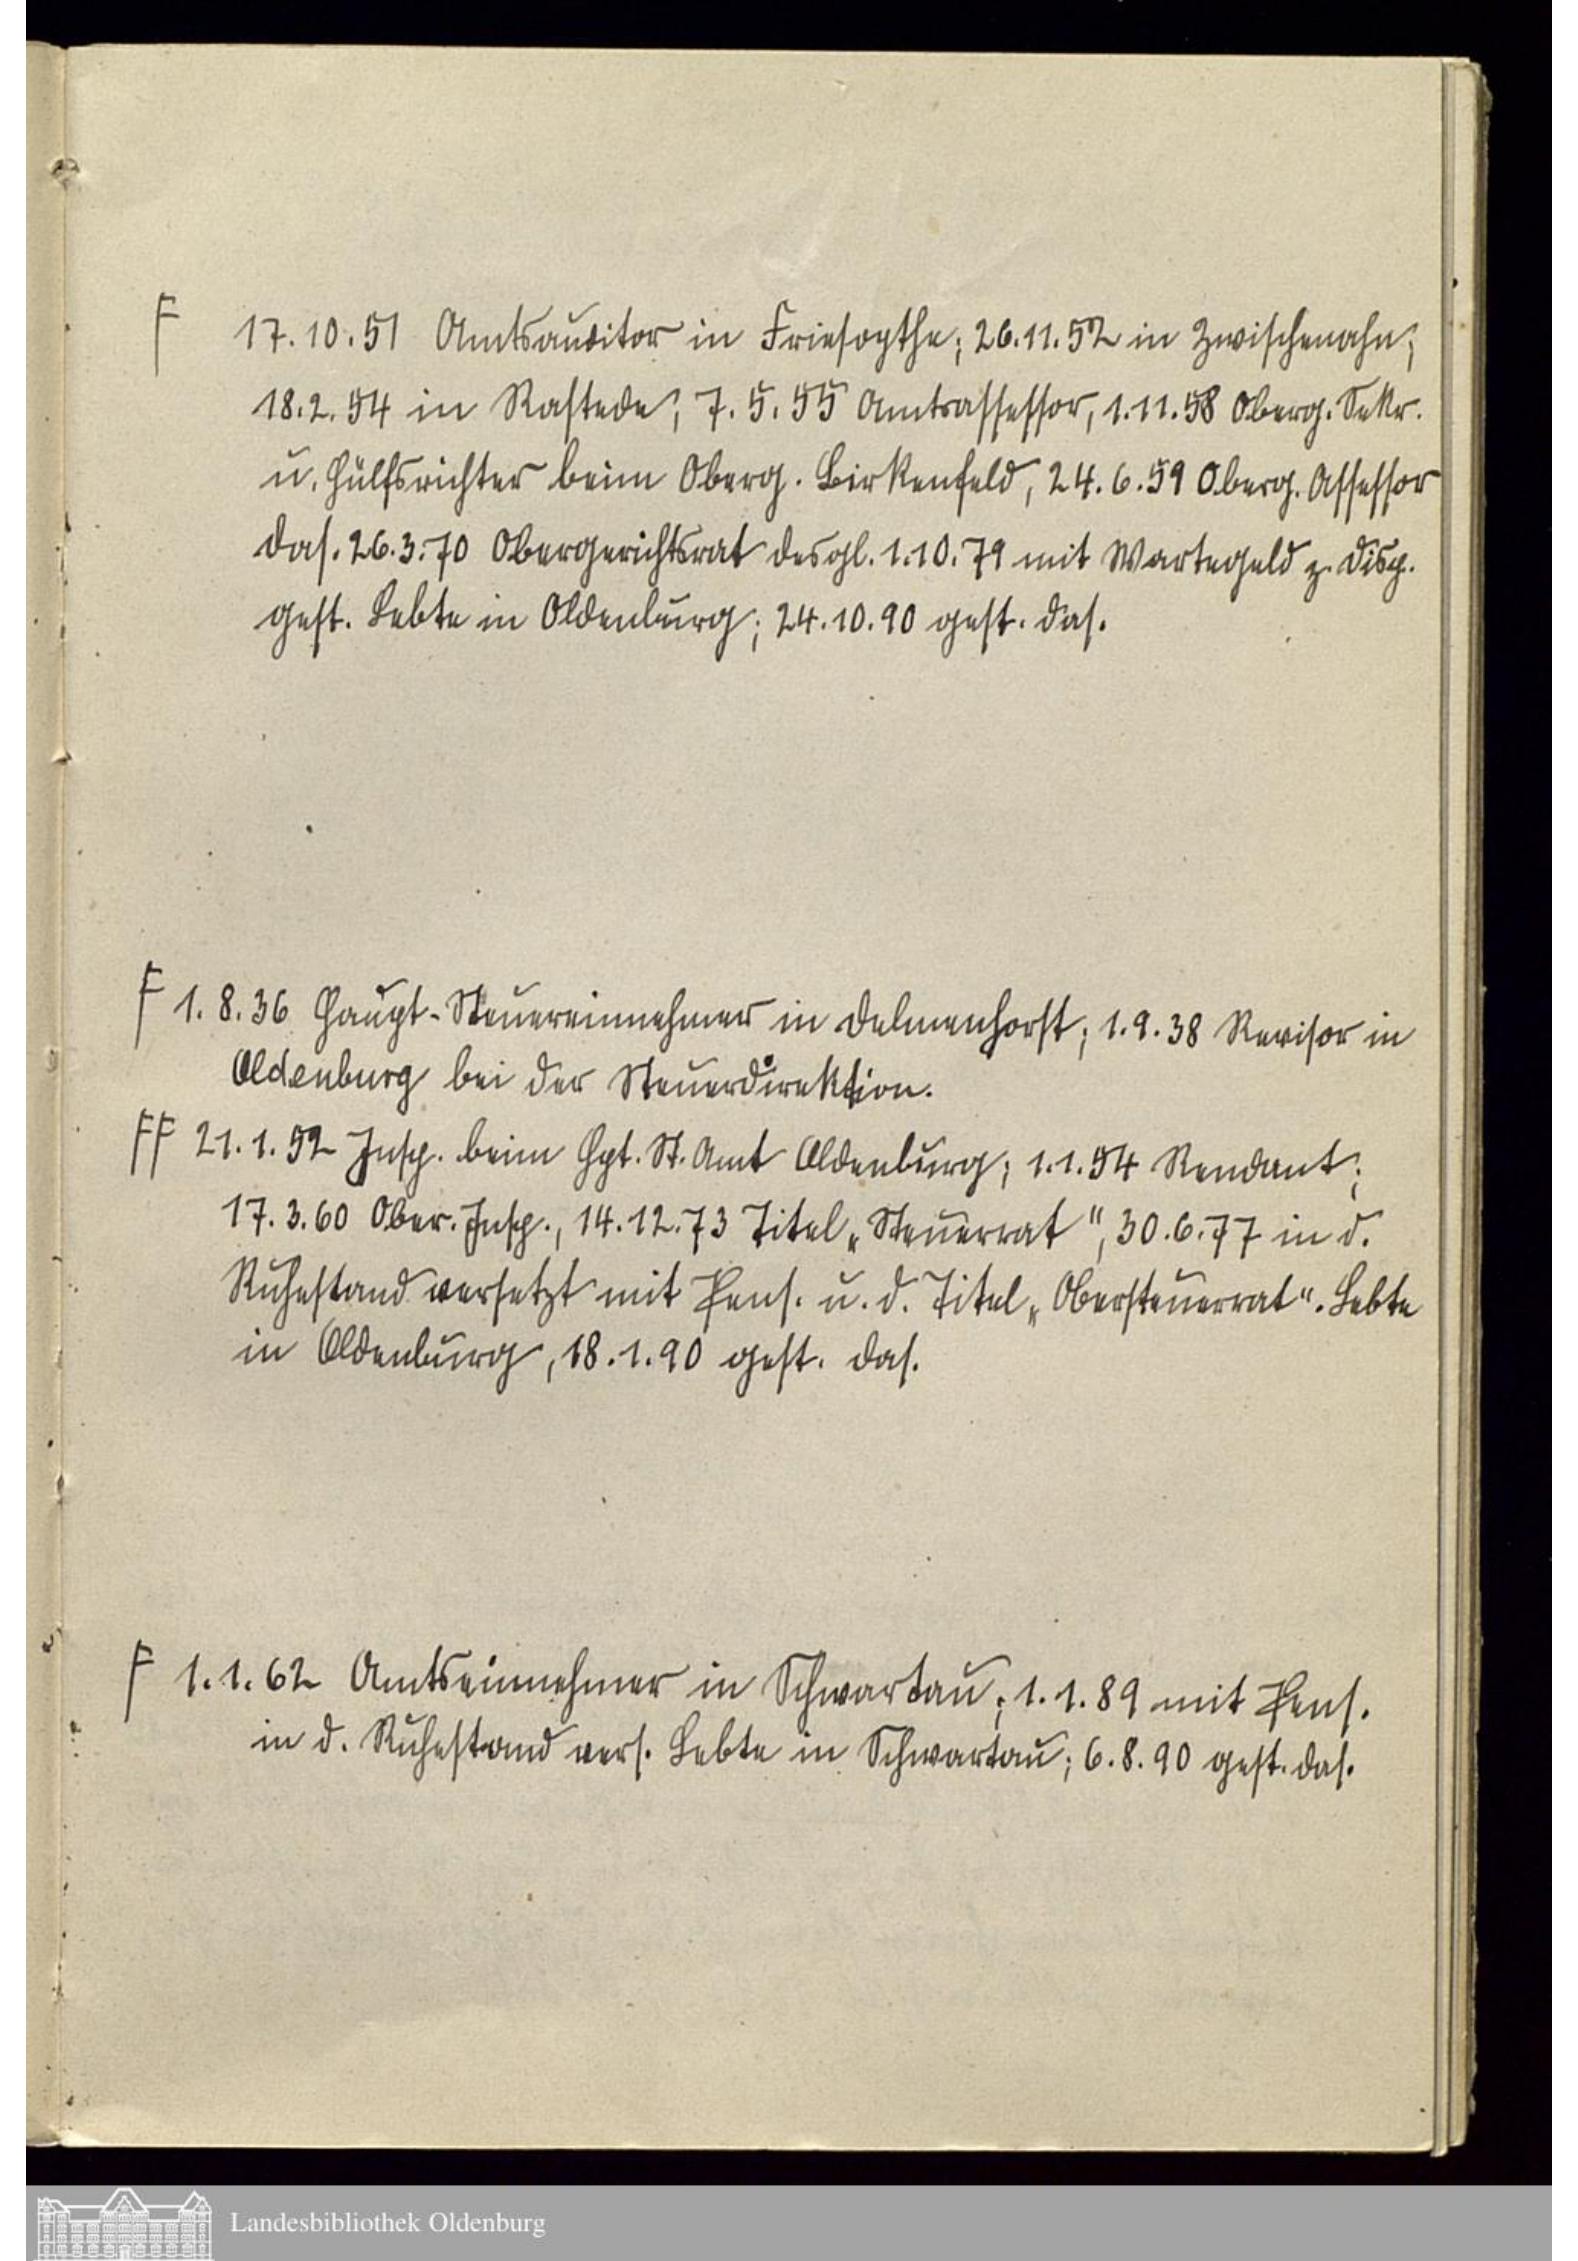 F 17.10.51 Amtsauditor in Friesoythe; 26.11.52 in Zwischenahn;
18.2.54 in Rastede; 7.5.55 Amtsassessor, 1.11.58 Oberg. Sekr.
u. Hülfsrichter beim Oberg. Birkenfeld, 24.6.59 Oberg. Assessor
das. 26.3.70 Obergerichtsrat desgl. 1.10.79 mit Wartegeld z. Disp.
gest. Lebte in Oldenburg; 24.10.90 gest. das.
F 1.8.36 Haupt-Steuereinnehmer in Delmenhorst; 1.9.38 Revisor in
Oldenburg bei der Steuerdirektion.
FF 21.1.52 Insp. beim Hpt. St. Amt Oldenburg; 1.1.54 Rendant;
17.3.60 Ober. Insp., 14.12.73 Titel „Steuerrat", 30.6.77 in d.
Ruhestand versetzt mit Pens. u. d. Titel „Obersteuerrat". Lebte
in Oldenburg, 18.1.90 gest. das.
F 1.1.62 Amtseinnehmer in Schwartau; 1.1.89 mit Pens.
in d. Ruhestand vers. Lebte in Schwartau; 6.8.90 gest. das.
Landesbibliothek Oldenburg